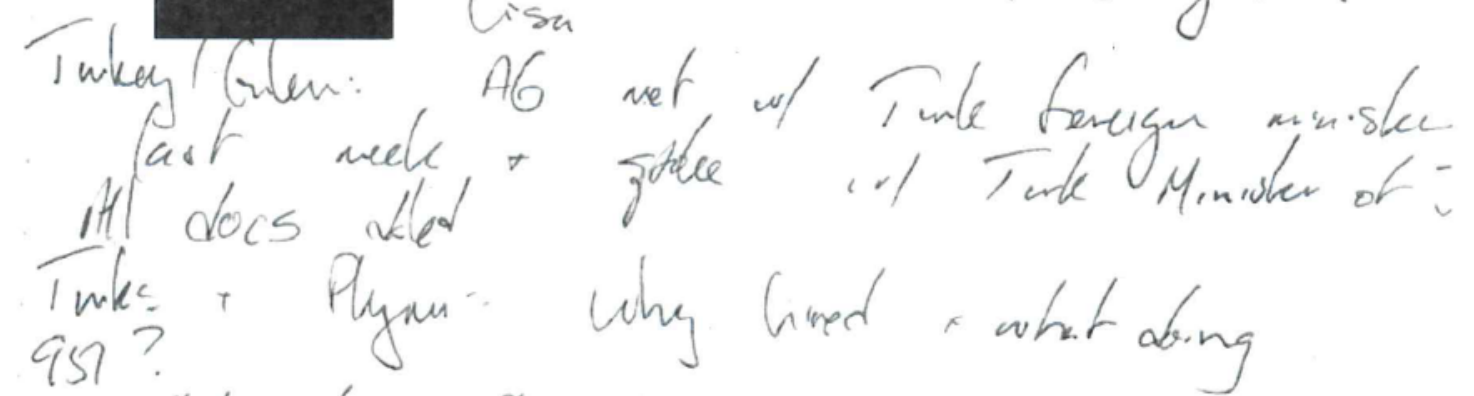 Lisa
Turkey/Gulen: AG met w/ Turk foreign minister
last week + spoke w/ Turk Minister of
All docs
Turks + Flynn: why hired + what doing
951?